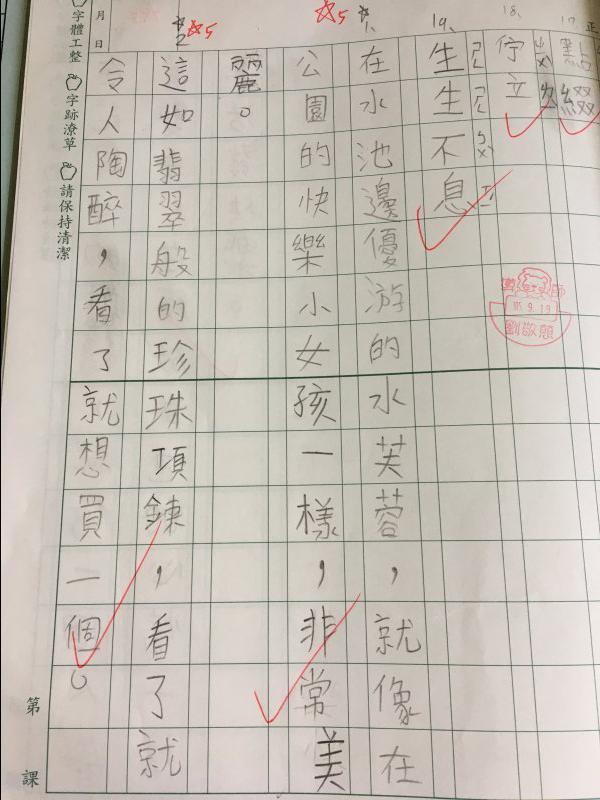 正
17、
點綴
18、
佇立
ㄓㄨˋ
19、
生生不息
ㄕㄥ ㄕㄥ ㄅㄨˋ ㄒㄧˊ
☆1、
在水池邊優游的水芙蓉，就像在
☆5
公園的快樂小女孩一樣，非常美
麗。
☆2
☆5
這如翡翠般的珍珠項鍊，看了就
令人陶醉，看了就想買一個。
月 日
字體工整 字跡潦草 請保持清潔
第 課
105.9.19
劉敬題